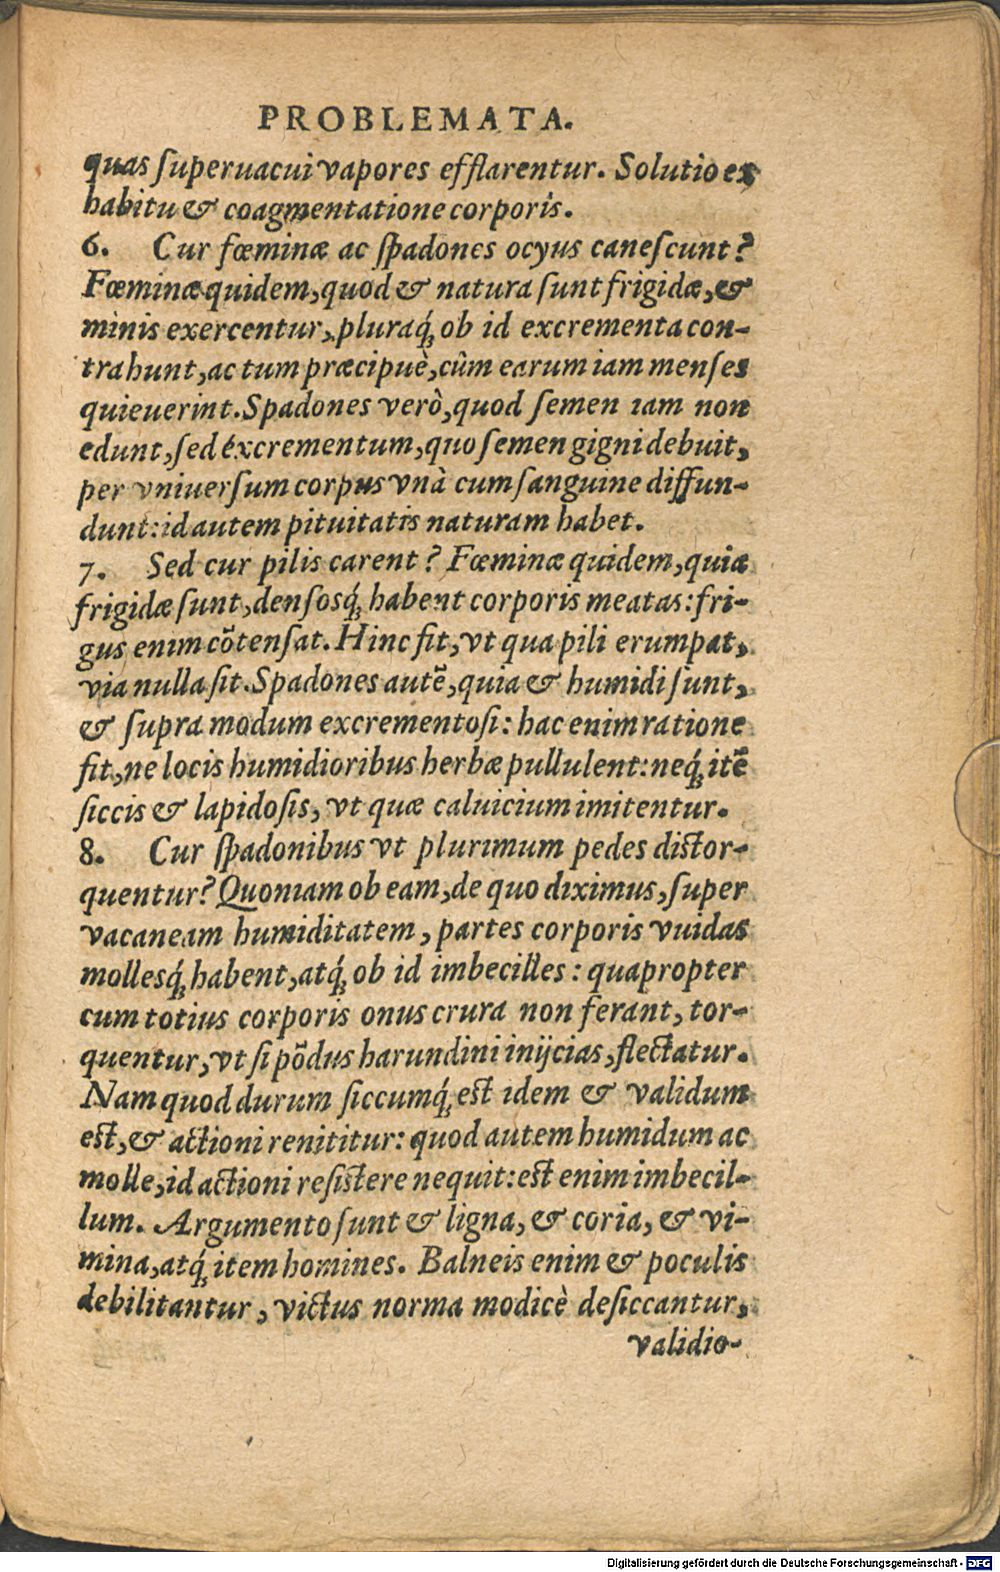 PROBLEMATA.
quas ſuperuacui vapores efflarentur. Solutio ex
habitu & coagmentatione corporis.
6. Cur fœminæ ac ſpadones ocyus caneſcunt?
Fœminæ quidem, quod & natura ſunt frigidæ, &
minis exercentur, pluraq́; ob id excrementa con-
trahunt, ac tum præcipuè, cûm earum iam menſes
quieuerint. Spadones verò, quod ſemen iam non
edunt, ſed éxcrementum, quo ſemen gigni debuit,
per vniuerſum corpus vnà cum ſanguine diffun-
dunt: id autem pituitatis naturam habet.
7. Sed cur pilis carent? Fœminæ quidem, quia
frigidæ ſunt, denſosq́; habent corporis meatas: fri-
gus enim cōtenſat. Hinc fit, vt qua pili erumpat,
via nulla ſit. Spadones autē, quia & humidi ſunt,
& ſupra modum excrementoſi: hac enim ratione
fit, ne locis humidioribus herbæ pullulent: neq́; itē
ſiccis & lapidoſis, vt quæ caluicium imitentur.
8. Cur ſpadonibus vt plurimum pedes distor-
quentur? Quoniam ob eam, de quo diximus, ſuper
vacaneam humiditatem, partes corporis vuidas
mollesq́; habent, atq́; ob id imbecilles: quapropter
cum totius corporis onus crura non ferant, tor-
quentur, vt ſi pōdus harundini inijcias, flectatur.
Nam quod durum ſiccumq́; est idem & validum
est, & actioni renititur: quod autem humidum ac
molle, id actioni reſistere nequit: est enim imbecil-
lum. Argumento ſunt & ligna, & coria, & vi-
mina, atq́; item homines. Balneis enim & poculis
debilitantur, victus norma modicè deſiccantur,
validio-
Digitalisierung gefördert durch die Deutsche Forschungsgemeinschaft - DFG